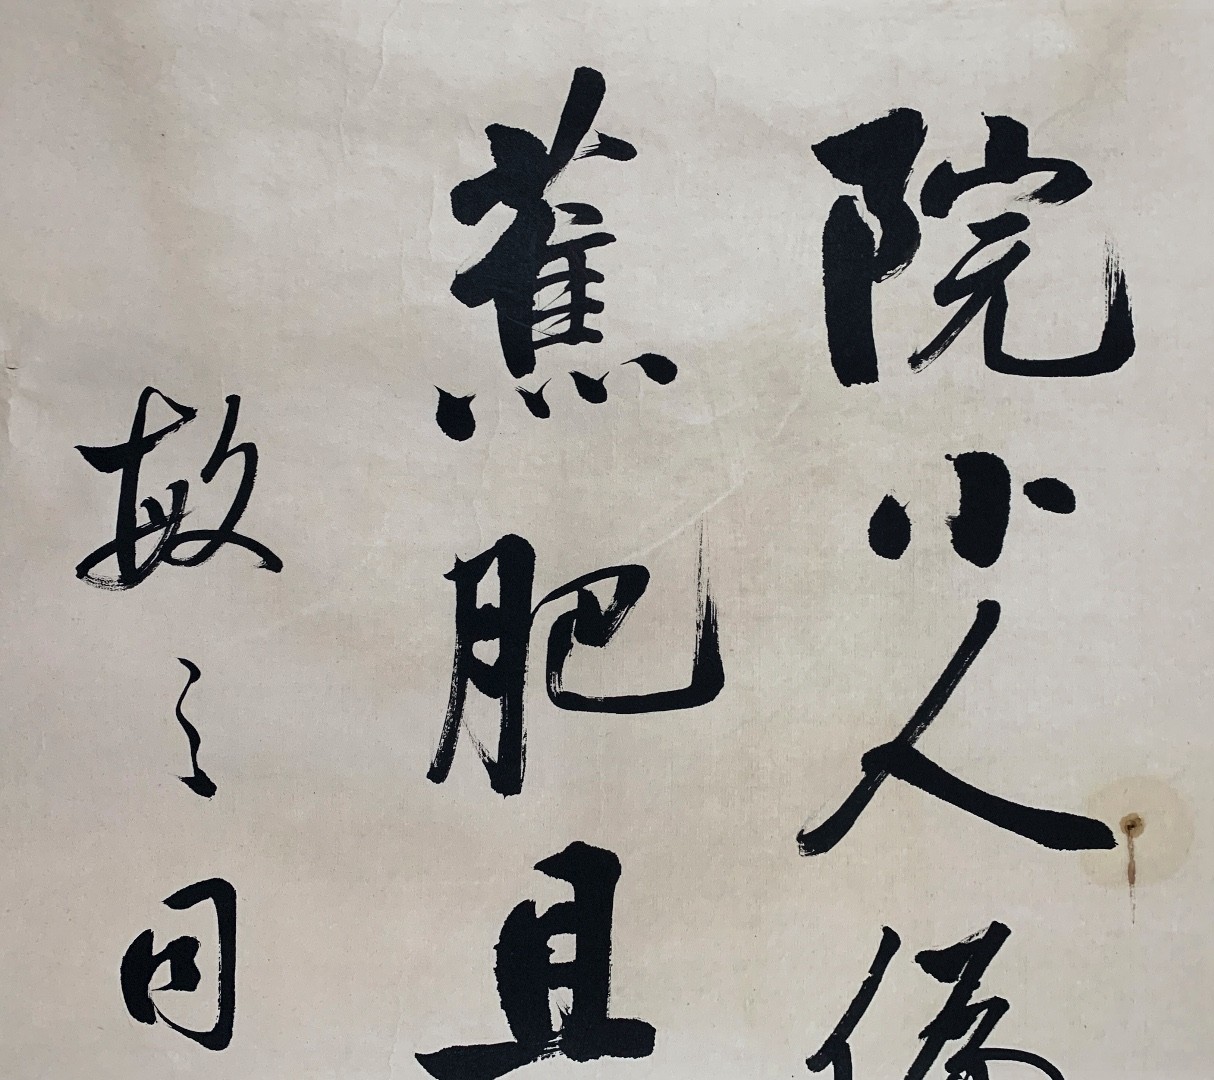 院小人
蕉肥且
敏之同